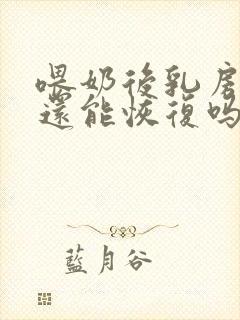 喂奶後乳房
還能恢復嗎
藍月谷